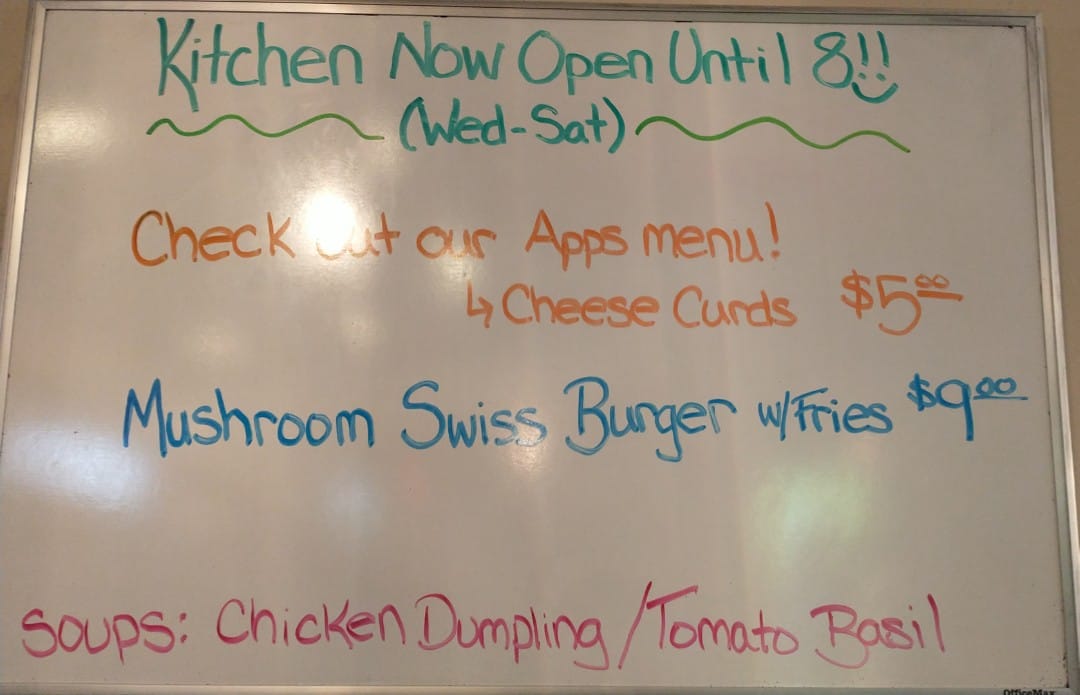 Kitchen Now Open Until 8!!
(Wed-Sat)
Check out our Apps menu!
↳ Cheese Curds $5.00
Mushroom Swiss Burger w/Fries $9.00
Soups: Chicken Dumpling / Tomato Basil
OfficeMax